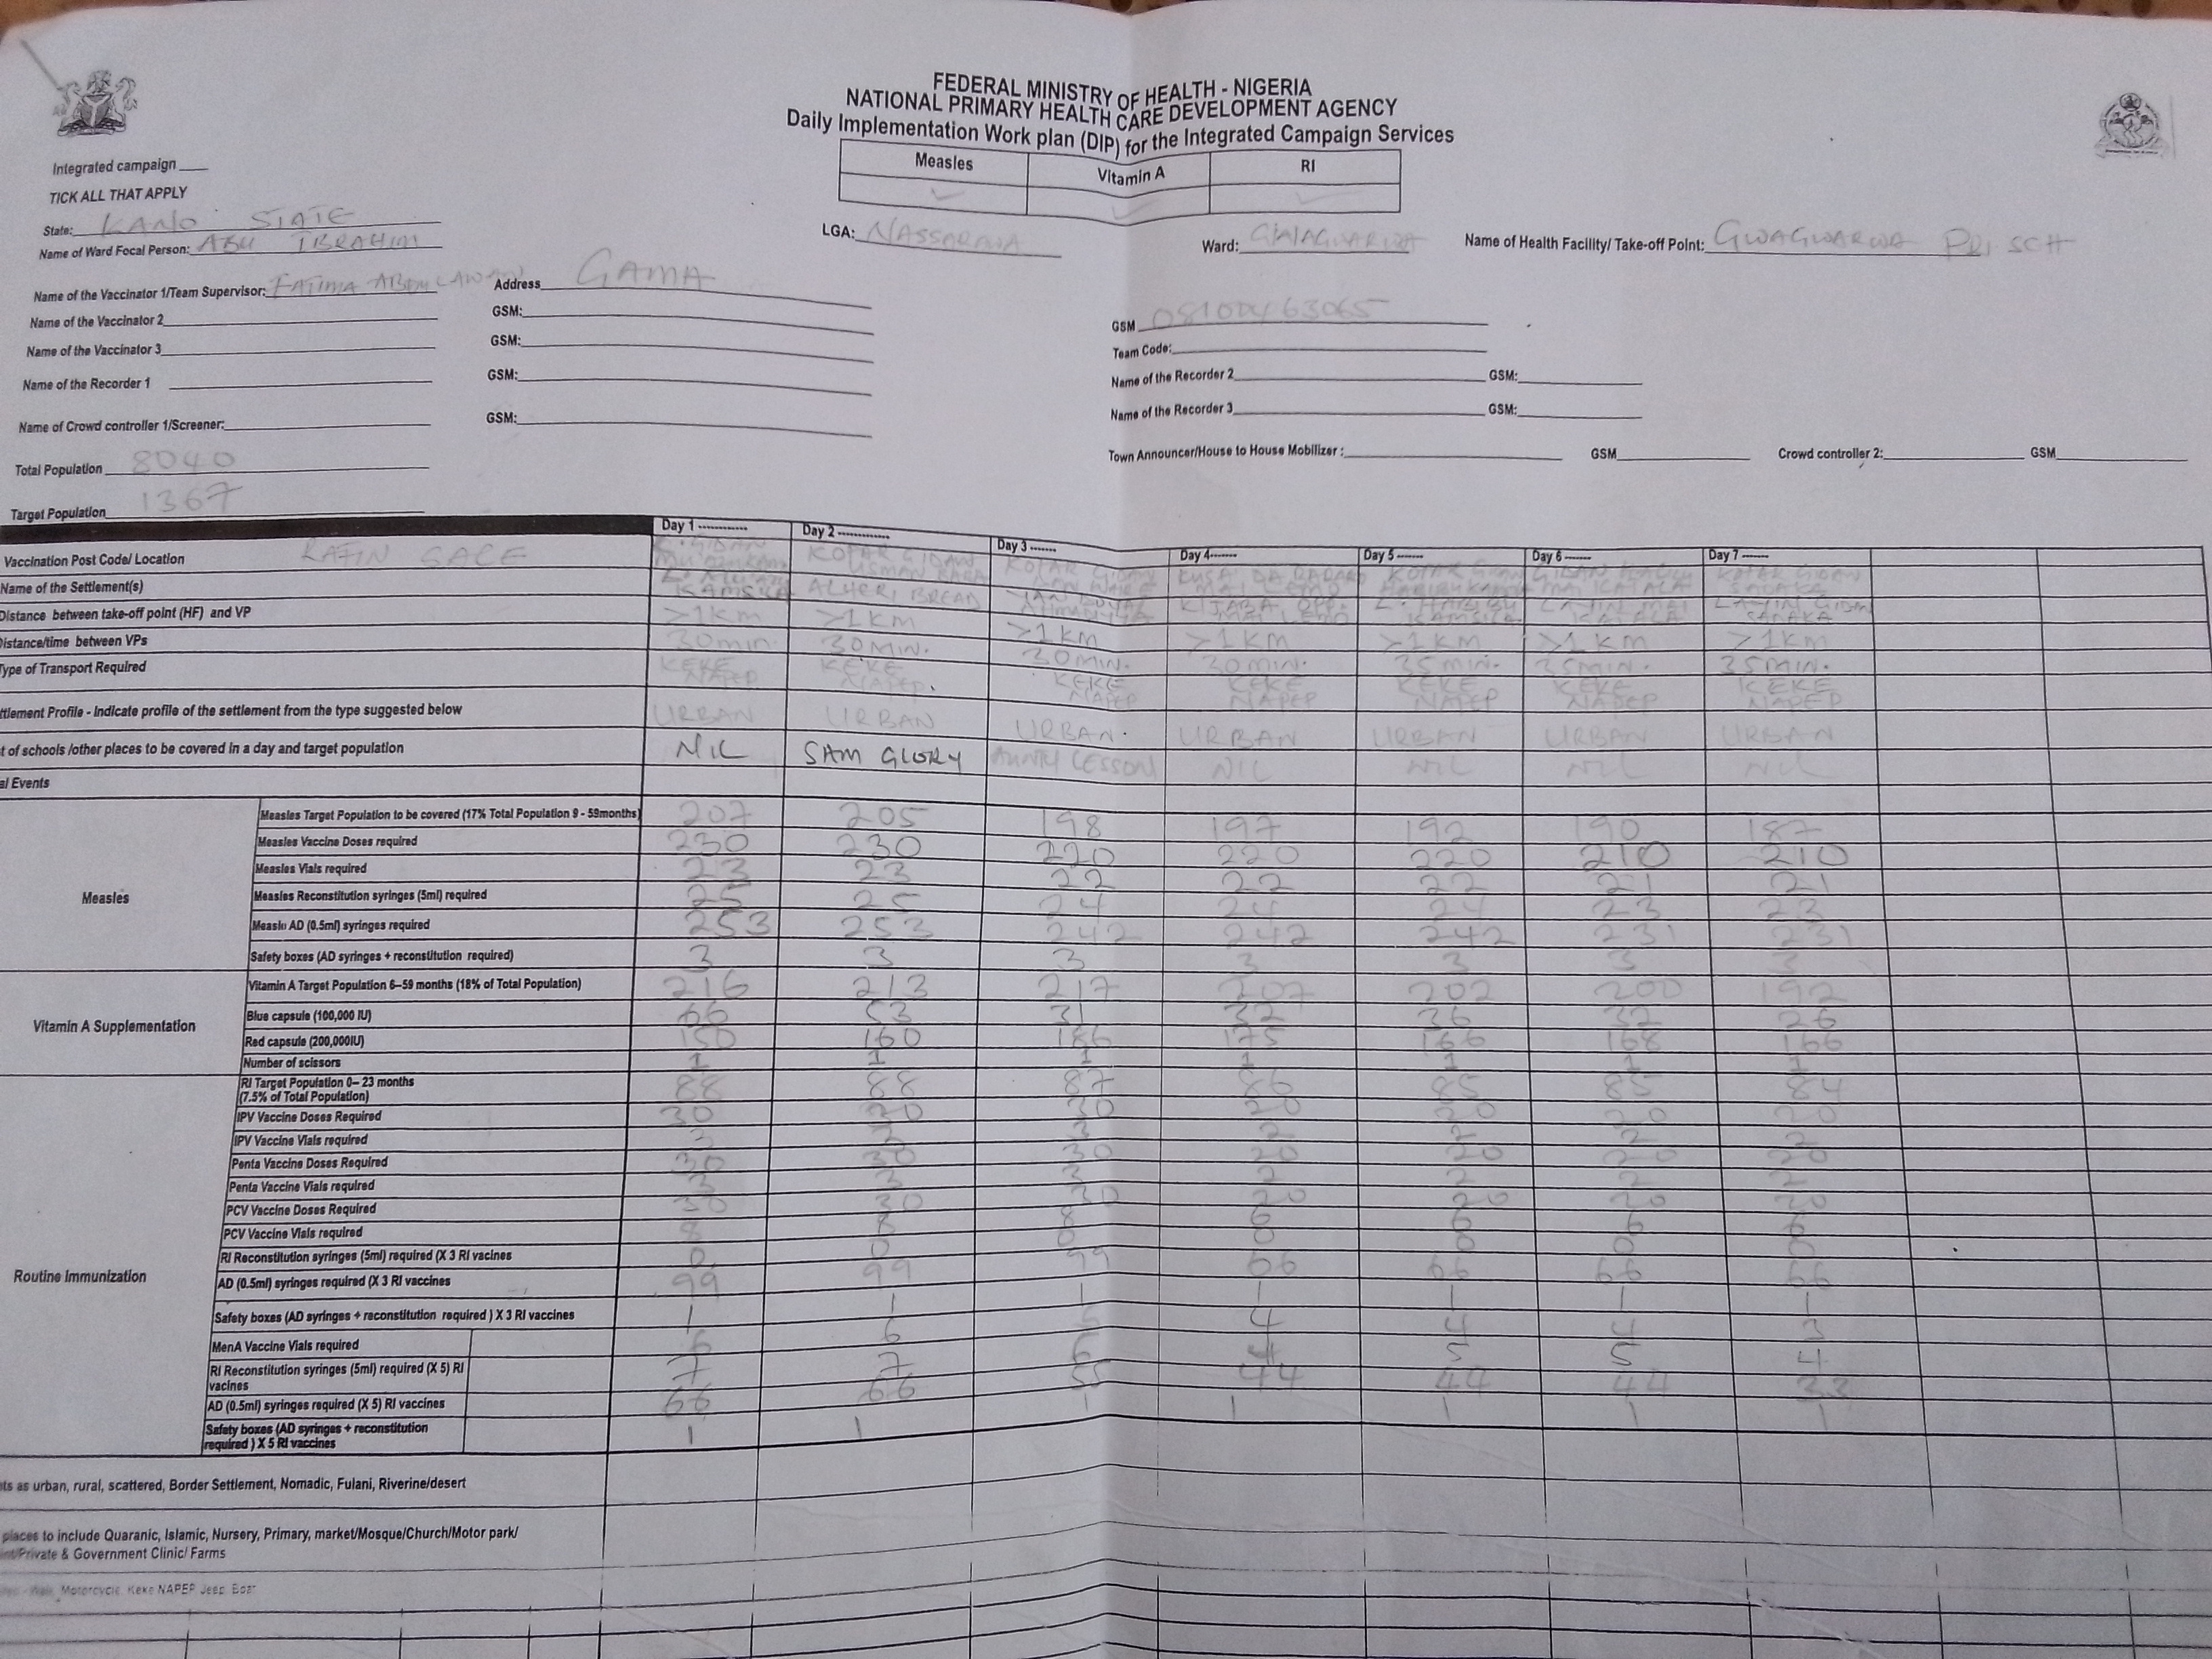 FEDERAL MINISTRY OF HEALTH - NIGERIA
NATIONAL PRIMARY HEALTH CARE DEVELOPMENT AGENCY
Daily Implementation Work plan (DIP) for the Integrated Campaign Services
Measles Vitamin A RI
Integrated campaign
TICK ALL THAT APPLY
State: KANO STATE
LGA: NASSARAWA Ward: GWAGWARWA Name of Health Facility/ Take-off Point: GWAGWARWA PRI SCH
Name of Ward Focal Person: ABU IBRAHIM
Name of the Vaccinator 1/Team Supervisor: FATIMA Address GAMA
GSM 08100463065
Name of the Vaccinator 2 GSM:
Name of the Vaccinator 3 GSM: Team Code:
Name of the Recorder 1 GSM: Name of the Recorder 2 GSM:
Name of the Recorder 3 GSM:
Name of Crowd controller 1/Screener: GSM:
Town Announcer/House to House Mobilizer : GSM Crowd controller 2: GSM
Total Population 8040
Target Population 1367
Day 1 Day 2 Day 3 Day 4 Day 5 Day 6 Day 7
Vaccination Post Code/ Location
Name of the Settlement(s) ALHERI BREAD
Distance between take-off point (HF) and VP >1KM >1KM >1KM >1KM >1KM >1KM >1KM
Distance/time between VPs 30min 30MIN. 30MIN. 30MIN. 35MIN. 35MIN. 35MIN.
Type of Transport Required KEKE NAPEP KEKE NAPEP. KEKE NAPEP KEKE NAPEP KEKE NAPEP KEKE NAPEP KEKE NAPEP
ttlement Profile - Indicate profile of the settlement from the type suggested below URBAN URBAN URBAN. URBAN URBAN URBAN URBAN
t of schools /other places to be covered in a day and target population NIL SAM GLORY AUNTY LESSON NIL NIL NIL NIL
al Events
Measles
Measles Target Population to be covered (17% Total Population 9 - 59months) 207 205 198 197 192 190 187
Measles Vaccine Doses required 230 230 220 220 220 210 210
Measles Vials required 23 23 22 22 22 21 21
Measles Reconstitution syringes (5ml) required 25 25 24 24 24 23 23
AD (0.5ml) syringes required 253 253 242 242 242 231 231
Safety boxes (AD syringes + reconstitution required) 3 3 3 3 3 3 3
Vitamin A Supplementation
Vitamin A Target Population 6–59 months (18% of Total Population) 216 213 217 207 202 200 192
Blue capsule (100,000 IU) 66 53 31 32 36 32 26
Red capsule (200,000IU) 150 160 186 175 166 168 166
Number of scissors 1 1 1 1 1 1 1
Routine Immunization
RI Target Population 0– 23 months
(7.5% of Total Population) 88 88 87 86 85 85 84
IPV Vaccine Doses Required 30 30 30 20 20 20 20
IPV Vaccine Vials required 3 3 3 2 2 2 2
Penta Vaccine Doses Required 30 30 30 20 20 20 20
Penta Vaccine Vials required 3 3 3 2 2 2 2
PCV Vaccine Doses Required 30 30 30 20 20 20 20
PCV Vaccine Vials required 8 8 8 6 6 6 6
RI Reconstitution syringes (5ml) required (X 3 RI vacines 0 0 0 0 0 0 0
AD (0.5ml) syringes required (X 3 RI vaccines 99 99 99 66 66 66 66
Safety boxes (AD syringes + reconstitution required ) X 3 RI vaccines 1 1 1 1 1 1 1
MenA Vaccine Vials required 6 6 5 4 4 4 3
RI Reconstitution syringes (5ml) required (X 5) RI
vacines 7 7 6 4 5 5 4
AD (0.5ml) syringes required (X 5) RI vaccines 66 66 55 44 44 44 33
Safety boxes (AD syringes + reconstitution
required ) X 5 RI vaccines 1 1 1 1 1 1 1
ts as urban, rural, scattered, Border Settlement, Nomadic, Fulani, Riverine/desert
places to include Quaranic, Islamic, Nursery, Primary, market/Mosque/Church/Motor park/
int/Private & Government Clinic/ Farms
Motorcycle, Keke NAPEP Jeep Boat